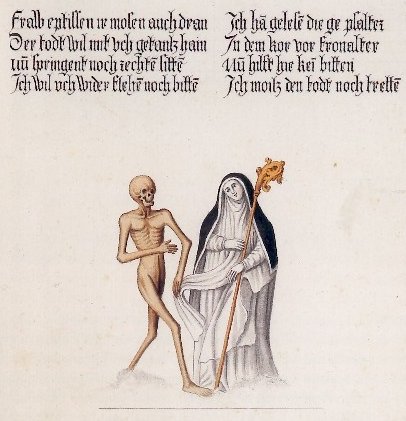 Fraw eptissen ir mosen auch dran
Der todt wil mit vch getantz hain
Nu̅ springent noch rechte̅ sitte̅
Ich wil vch wider flehe̅ noch bitte̅
Ich ha̅ gelese̅ die ge psalter
In dem kor vor fronalter
Nu̅ hilft hie kei bitten
Ich mois den todt noch trette̅